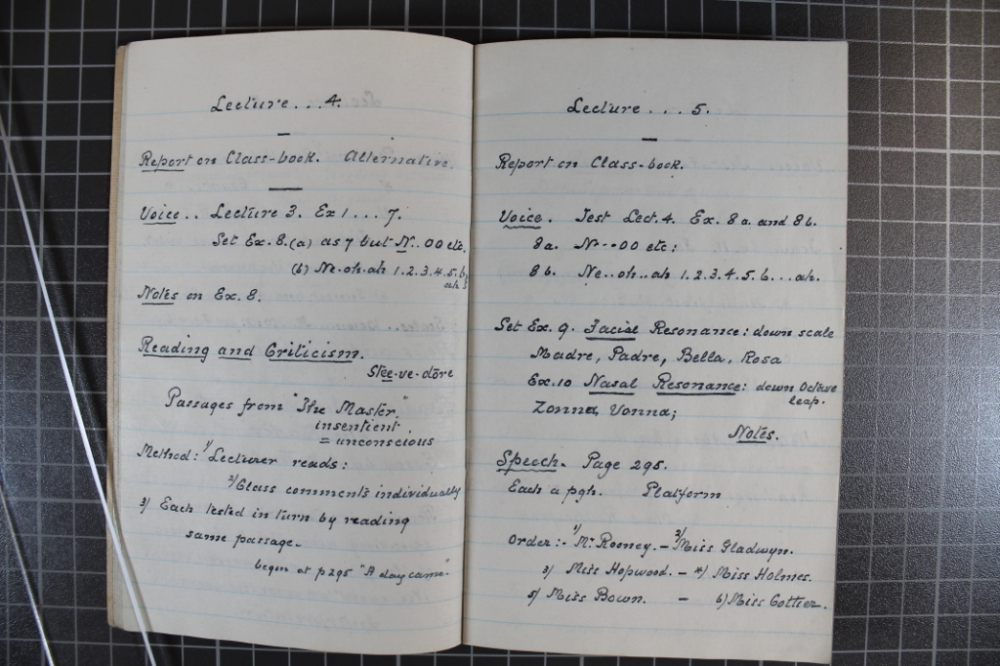 Lecture . . . 4.
Report on Class-book. Alternative.
Voice . . Lecture 3. Ex 1 . . . 7.
Set Ex. 8. (a) as 7 but N . . OO etc.
(b) Ne . oh . ah 1. 2. 3. 4. 5. 6
ah }
Notes on Ex. 8.
Reading and Criticism.
Stee-ve-dore
Passages from "The Master."
insentient.
= unconscious
Method: 1/ Lecturer reads:
2/ Class comments individually
3/ Each tested in turn by reading
same passage.
begin at p 295 "A day came"
Lecture . . . 5.
Report on Class-book.
Voice. Test Lect. 4. Ex. 8a. and 8b.
8a. N - - OO etc:
8b. Ne . . oh . . ah 1. 2. 3. 4. 5. 6 . . . ah.
Set Ex. 9. Facial Resonance: down scale
Madre, Padre, Bella, Rosa
Ex. 10 Nasal Resonance: down Octave
leap.
Zonna, Vonna;
Notes.
Speech. Page 295.
Each a pgh. Platform
Order :- 1/ Mr Rooney. - 2/ Miss Gladwyn.
3/ Miss Hopwood. - 4/ Miss Holmes.
5/ Miss Bown. - 6/ Miss Cottier.